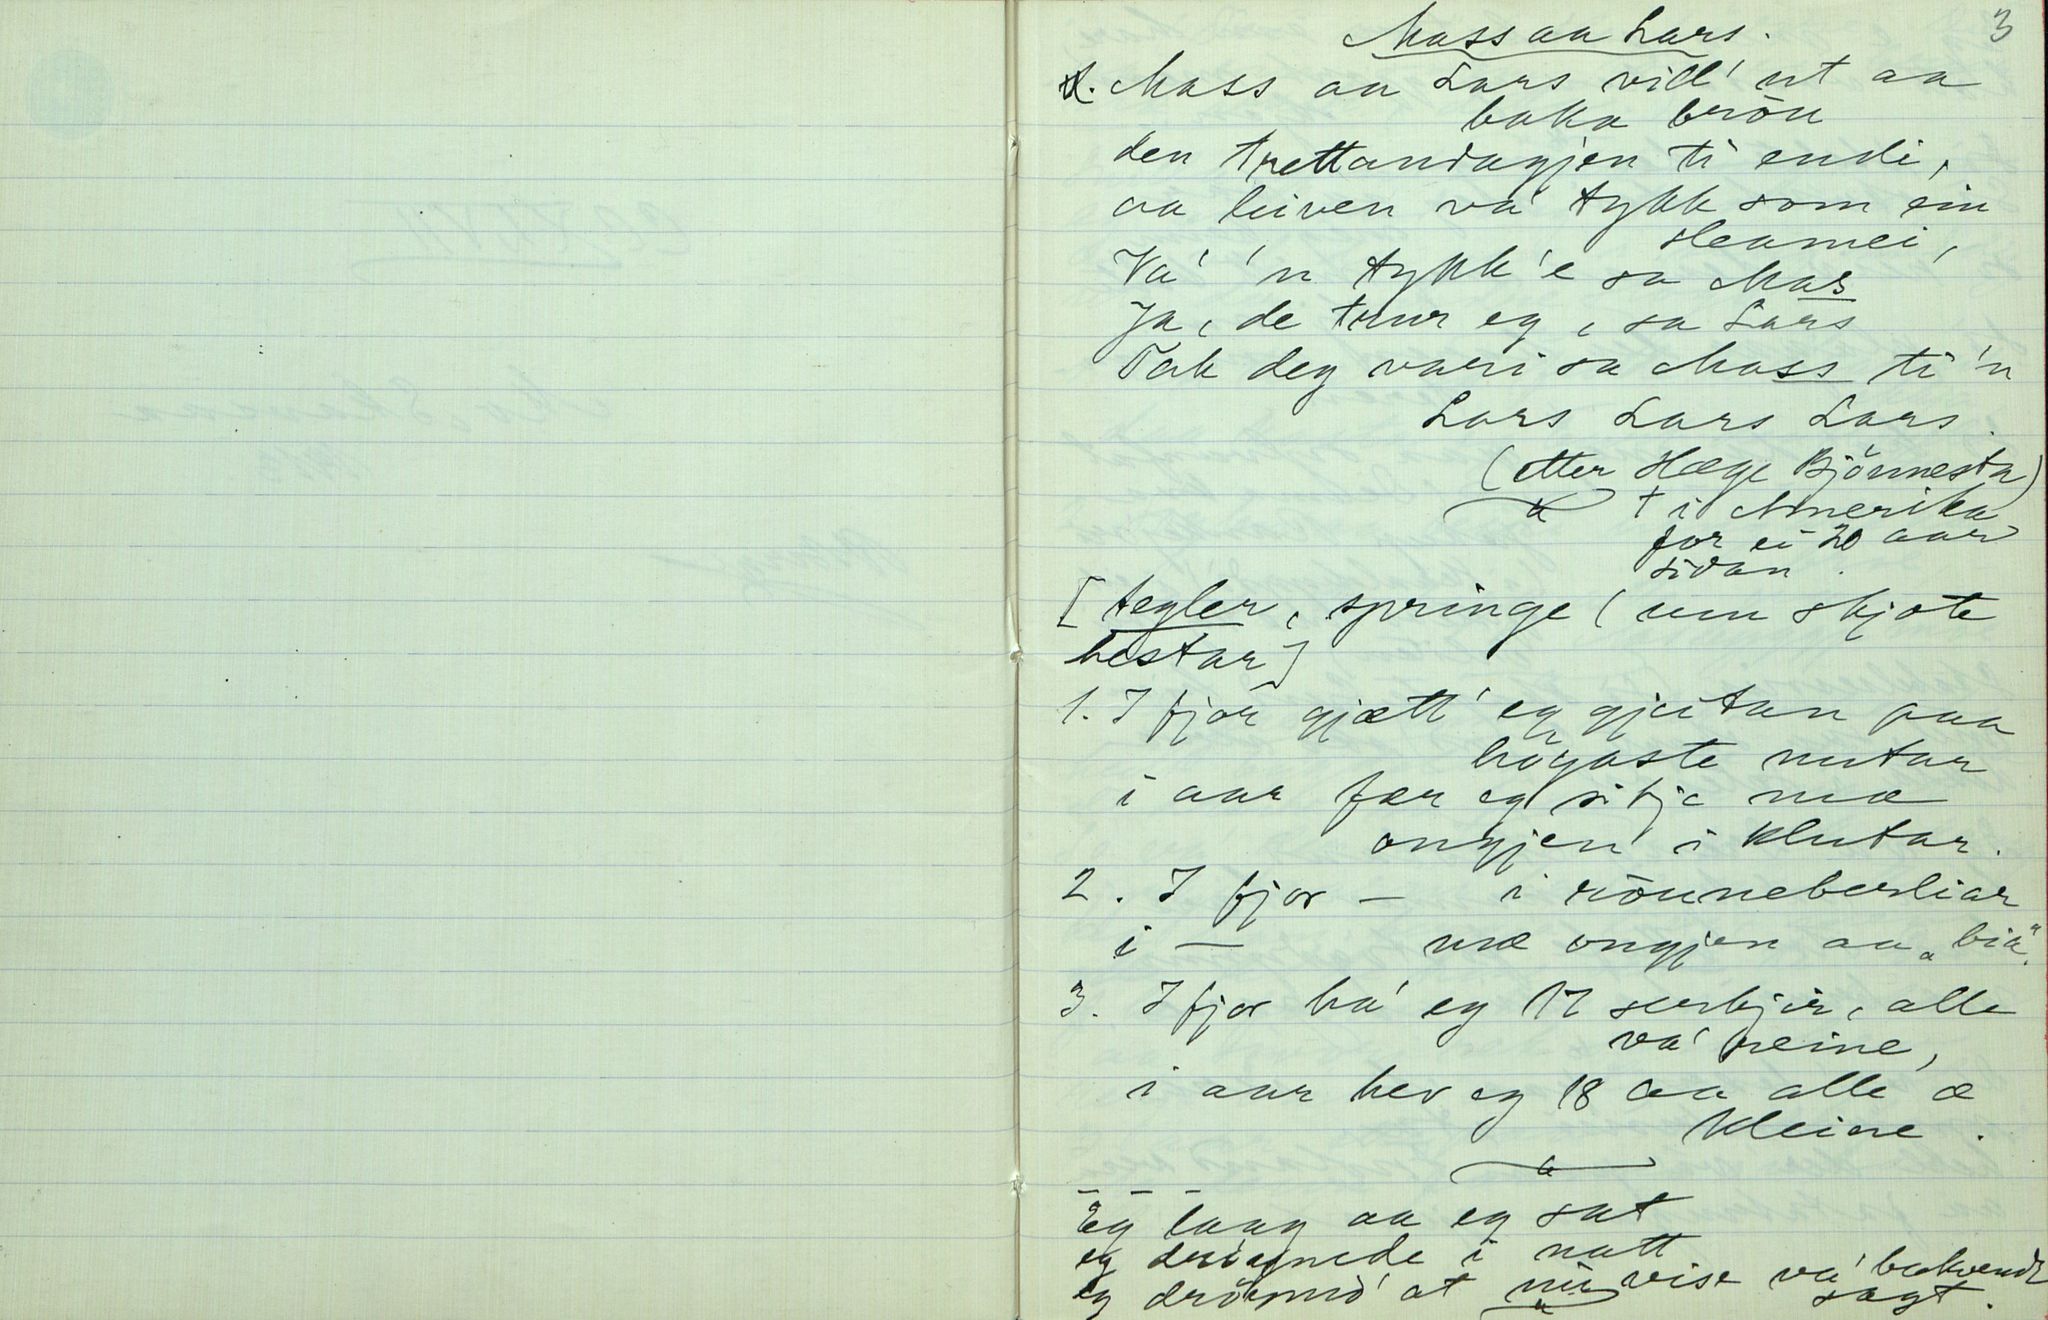 3
Mass aa Lars.
1. Mass aa Lars vill' ut aa
baka brön
den trettandagjen ti endi,
aa leiven va' tykk som ein
sleamei,
Va' 'n tykk'e sa Mas
Ja, de trur eg, sa Lars
Tak deg vari sa Mass ti 'n
Lars Lars Lars.
(etter Hæge Bjönnesta)
† i Amerika
for ei 20 aar
sidan.
[tegler, springe (um skjote
hestar]
1. I fjor gjætt' eg gjeitan paa
högaste nutar
i aar fær eg sitja mæ
ongjen i klutar.
2. I fjor — i rönneberliar
i — mæ ongjen aa „bia".
3. I fjor ha' eg 17 serkjir, alle
va' reine,
i aar hev eg 18 aa alle æ
kleine.
Eg laag aa eg sat
eg dröymde i natt
eg dröymd' at mi vise va' bakvendt
sagt.